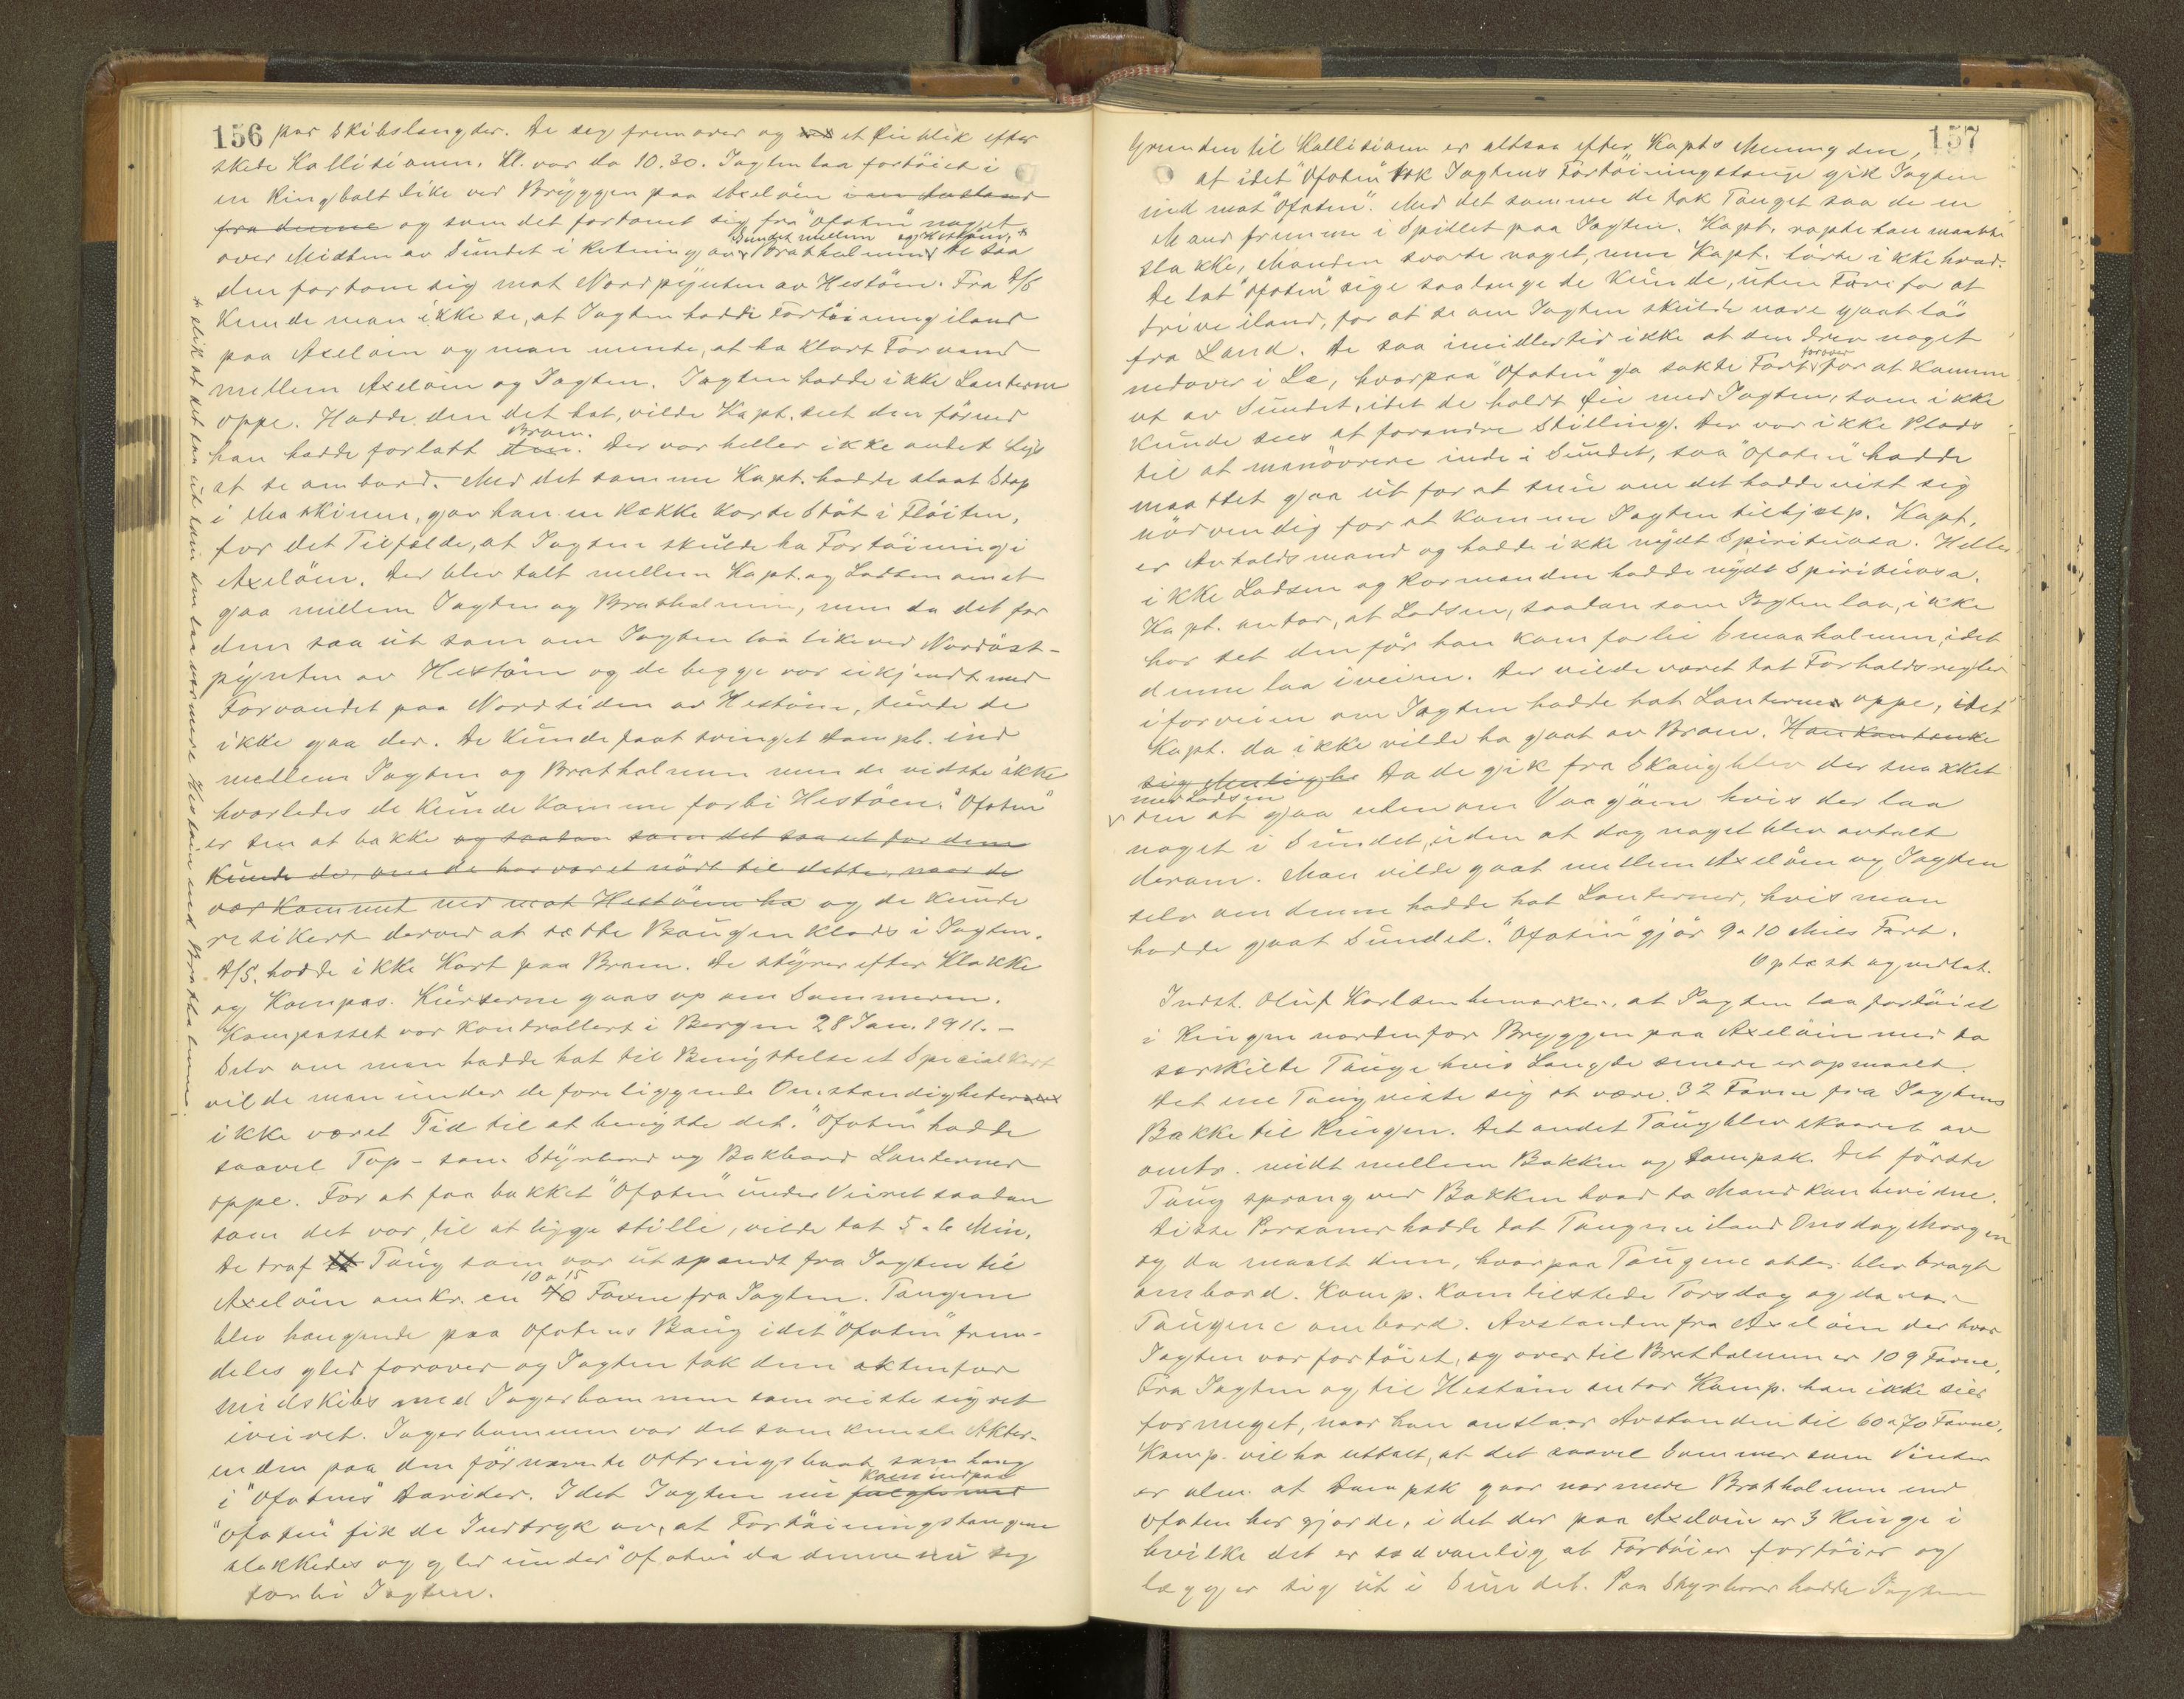 156 par Skibslængder. De seg fremover og et Øieblik efter
skede Kollisionen. Kl. var da 10.30. Jagten laa fortöiet i
en Ringbolt like ved Bryggen paa Axelöen i en Avstand
fra denne og som det fortonet sig fra "Ofoten" noget
over Midten av Sundet i Retning av Sundet mellem Bratholmen og Hestöen, * De saa
den fortone sig mot Nordpynten av Hestöen. Fra D/S
kunde man ikke se, at Jagten hadde Fortöining iland
paa Axelöen og man mente, at ha klart Farvand
mellem Axelöen og Jagten. Jagten hadde ikke Lanterne
oppe. Hadde den det hat, vilde Kapt. seet den förend
han hadde forlatt Broen. Der var heller ikke andet Lys
at se ombord. Med det samme Kapt. hadde slaat Stop
i Maskinen, gav han en Række korte Stöt i Flöiten,
for det Tilfælde, at Jagten skulde ha Fortöining i
Axelöen. Der blev talt mellem Kapt. og Lodsen om at
gaa mellem Jagten og Bratholmen, men da det for
dem saa ut som om Jagten laa like ved Nordöst-
pynten av Hestöen og de begge var ukjendt med
Farvandet paa Nordsiden av Hestöen, turde de
ikke gaa der. De kunde faat svinget Dampsk. ind
mellem Jagten og Bratholmen men de vidste ikke
hvorledes de kunde komme forbi Hestöen. "Ofoten"
er sen at bakke og saadan som det saa ut for dem
kunde de, om de har været nödt til dette, naar de
var kommet ned mot Hestöen ha og de kunde
risikert derved at sætte Baugen klods i Jagten.
D/S. hadde ikke Kart paa Broen. De styrer efter Klokke
og Kompas. Kurserne gaas op om Sommeren.
Kompasset var kontrollert i Bergen 28 Jan. 1911. -
Selv om man hadde hat til Benyttelse et Specialkart
vilde man under de foreliggende Omstændigheter
ikke været Tid til at benytte det. "Ofoten" hadde
saavel Top- som Styrbord og Bakbord Lanterner
oppe. For at faa bakket "Ofoten" under Veiret saadan
som det var, til at ligge stille, vilde tat 5 a 6 Min.
De traf Taug som var utspændt fra Jagten til
Axelöen omkr. en 10 a 15 Favne fra Jagten. Taugene
blev hængende paa Ofotens Baug idet "Ofoten" frem-
deles gled forover og Jagten tok dem aktenfor
midskibs med Jagerbommen som reiste sig ret
iveiret. Jagerbommen var det som knuste Akter-
enden paa den förnævnte Ottringsbaat som hang
i "Ofotens" Davider. Idet Jagten nu kom indpaa
"Ofoten" fik de Indtryk av, at Fortöiningstaugene
slakkedes og gled under "Ofoten" da denne nu seg
forbi Jagten.
* slik at det saa ut som den laa nærmere Hestöen end Bratholmen.
157
Grunden til Kollisionen er altsaa efter Kapts Mening den,
at idet "Ofoten" tok Jagtens Fortöiningstauge gik Jagten
ind mot "Ofoten". Med det samme de tok Tauget saa de en
Mand fremme i Spillet paa Jagten. Kapt. ropte han maatte
slakke, Manden svarte noget, men Kapt. hörte ikke hvad.
De lot "Ofoten" sige saalænge de kunde, uten Fare for at
drive iland, for at se om Jagten skulde være gaat lös
fra Land. De saa imidlertid ikke at den drev noget
nedover i Læ, hvorpaa "Ofoten" ga sakte Fart forover for at komme
ut av Sundet, idet de holdt Øie med Jagten, som ikke
kunde sees at forandre Stilling. Der var ikke Plads
til at manövrere inde i Sundet, saa "Ofoten" hadde
maattet gaa ut for at snu om det hadde vist sig
nödvendig for at komme Jagten tilhjælp. Kapt.
er Avholdsmand og hadde ikke nydt Spirituosa. Heller
ikke Lodsen og Rormanden hadde nydt Spirituosa.
Kapt. antar, at Lodsen, saadan som Jagten laa, ikke
har set den för han kom forbi Smaaholmen, idet
denne laa i veien. Der vilde været tat Forholdsregler
i forveien om Jagten hadde hat Lanterner oppe, idet
Kapt. da ikke vilde ha gaat av Broen. Han kan tænke
sig Muligh. Da de gik fra Skaug blev der snakket
med Lodsen om at gaa utenom Vaagöen hvis der laa
noget i Sundet, uden at dog noget blev avtalt
derom. Man vilde gaat mellem Axelöen og Jagten
selv om denne hadde hat Lanterner, hvis man
hadde gaat Sundet. "Ofoten" gjör 9 a 10 Miles Fart.
Oplæst og vedtat.
Indst. Oluf Karlsen bemærker, at Jagten laa fortöiet
i Ringen nordenfor Bryggen paa Axelöen med to
særskilte Tauge hvis Længde senere er opmaalt.
Det ene Taug viste sig at være 32 Favne fra Jagtens
Bakke til Ringen. Det andet Taug blev skaaret av
omtr. midt mellem Bakken og Dampsk. Det förste
Taug sprang ved Bakken hvad to Mand kan bevidne.
Disse Personer hadde tat Taugene iland Onsdag Morgen
og da maalt dem, hvorpaa Taugene atter blev bragt
ombord. Komp. kom tilstede Torsdag og da var
Taugene ombord. Avstanden fra Axelöen der hvor
Jagten var fortöiet, og over til Bratholmen er 109 Favne,
Fra Jagten og til Hestöen antar Komp. han ikke sier
formeget, naar han anslaar Avstanden til 60 a 70 Favne.
Komp. vil ha uttalt, at det saavel Sommer som Vinter
er alm. at Dampsk gaar nærmere Bratholmen end
Ofoten her gjorde, idet der paa Axelöen er 3 Ringe i
hvilke det er sedvanlig at Fartöier fortöier og
lægger sig ut i Sundet. Paa Styrbord hadde Jagten